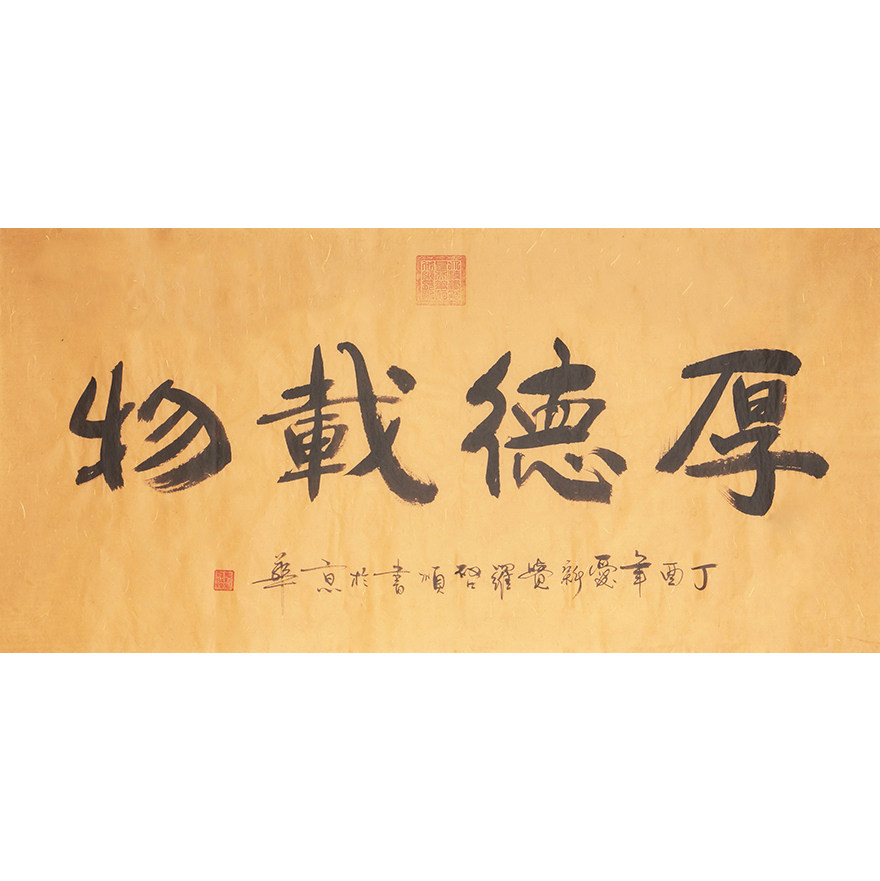 厚德載物
丁酉年愛新覺羅啓順書於京華